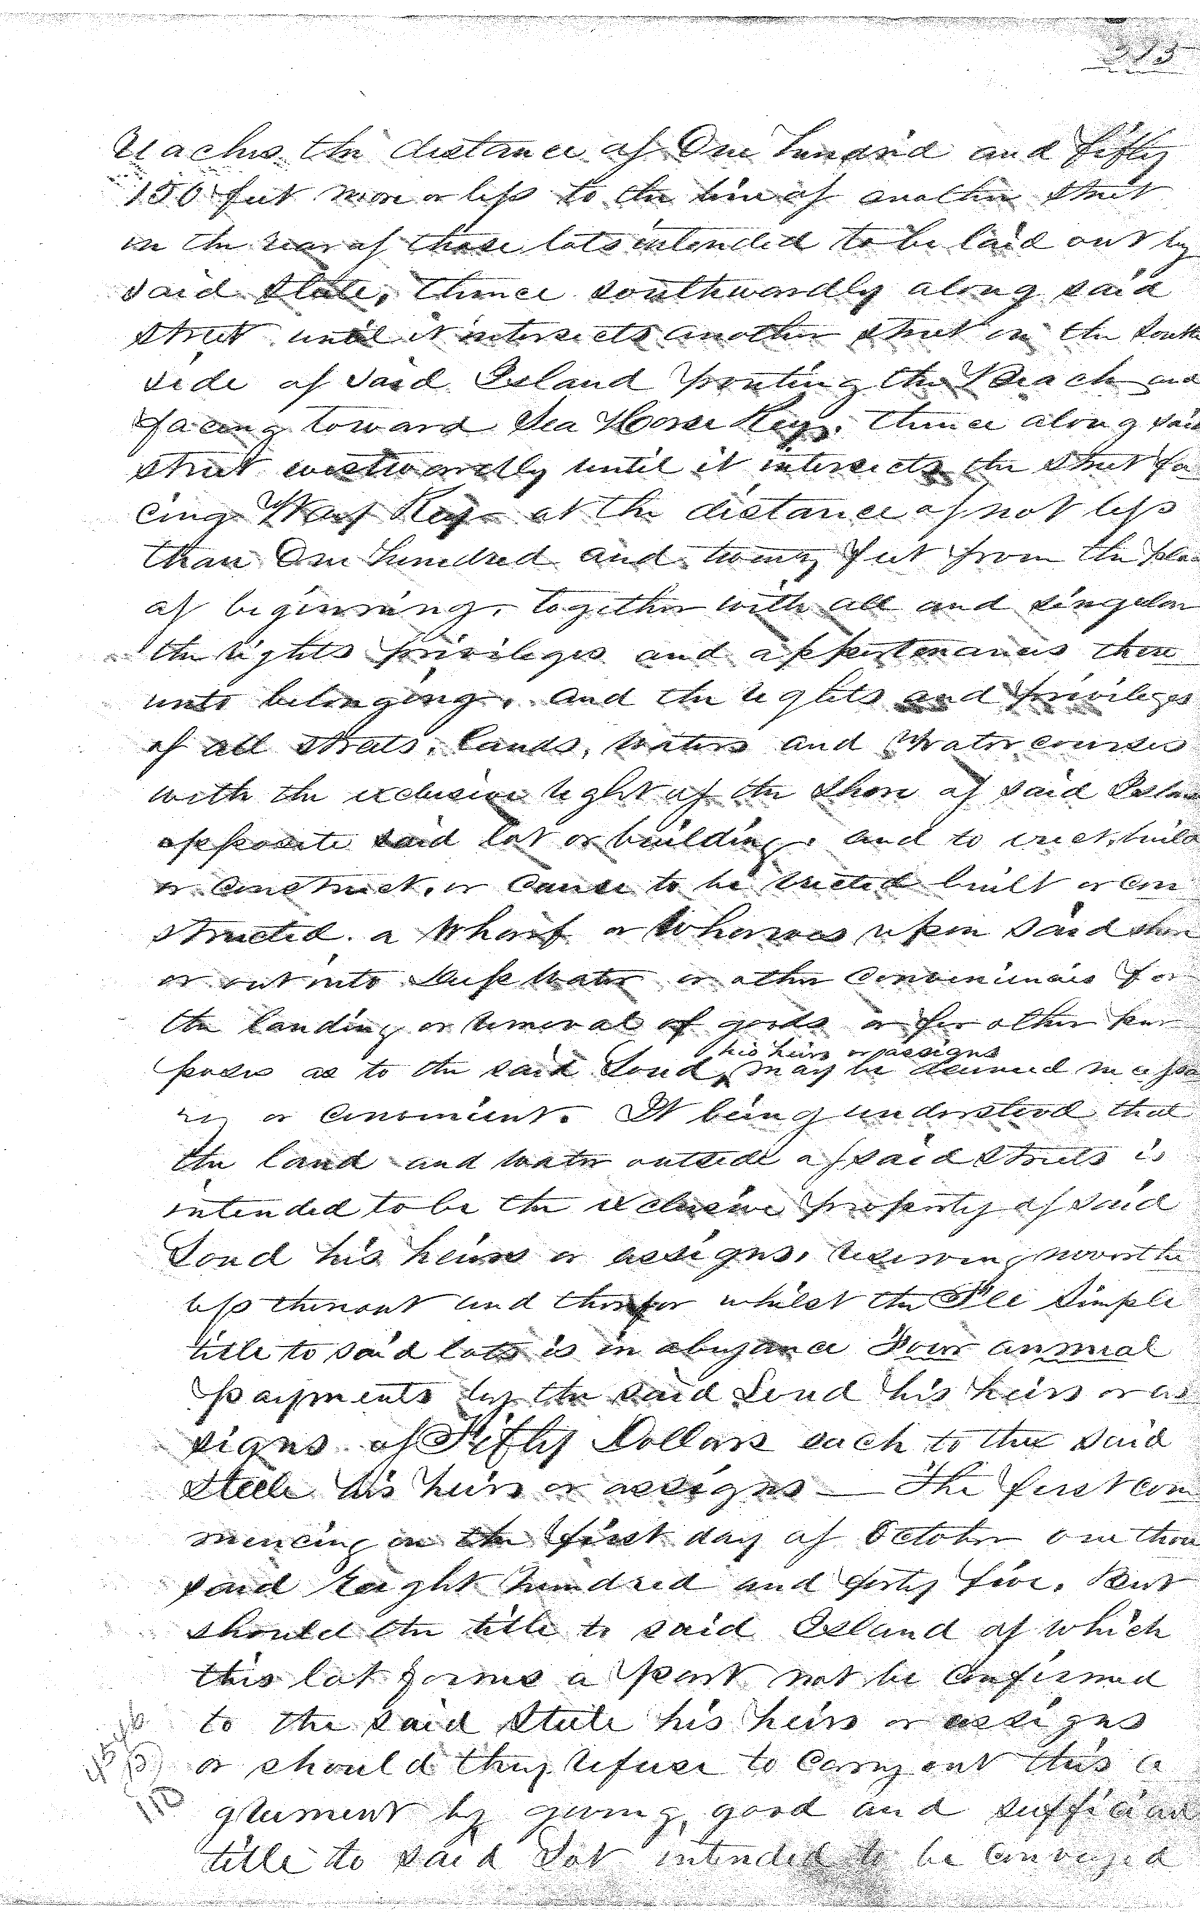 reaches the distance of One hundred and fifty
150 feet more or less to the line of another street
in the rear of these lots intended to be laid out by
said Steele, thence southwardly along said
street until it intersects another street on the South
side of said Island fronting the Beach and
facing toward Sea Horse Key, thence along said
street westwardly until it intersects the street fa
cing Way Key at the distance of not less
than One hundred and twenty feet from the pla
of beginning, together with all and singular
the rights privileges and appertenances there
unto belonging, and the rights and privileges
of all streets, lands, waters and Water courses
with the exclusive right of the shore of said Islan
opposite said lot or building, and to erect, build
or construct, or cause to be erected built or con
structed a Wharf or Wharves upon said shore
or out into deep Water or other conveniences for
the landing or removal of goods or for other pur
his heirs or assigns
poses as to the said Loud, may be deemed necessa
ry or convenient. It being understood that
the land and water outside of said streets is
intended to be the exclusive property of said
Loud his heirs or assigns, reserving neverthe
less thereout and therefor whilst the Fee Simple
title to said lots is in abeyance Four annual
payments by the said Loud his heirs or as
signs of Fifty Dollars each to the said
Steele his heirs or assigns — The first com
mencing on the first day of October one thou
said Eight hundred and forty five. But
should the title to said Island of which
this lot forms a part not be confirmed
to the said Steele his heirs or assigns
or should they refuse to carry out this a
greement by giving, good and sufficient
title to said Lot intended to be conveyed
110